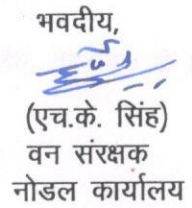 भवदीय,
(एच.के. सिंह)
वन संरक्षक
नोडल कार्यालय